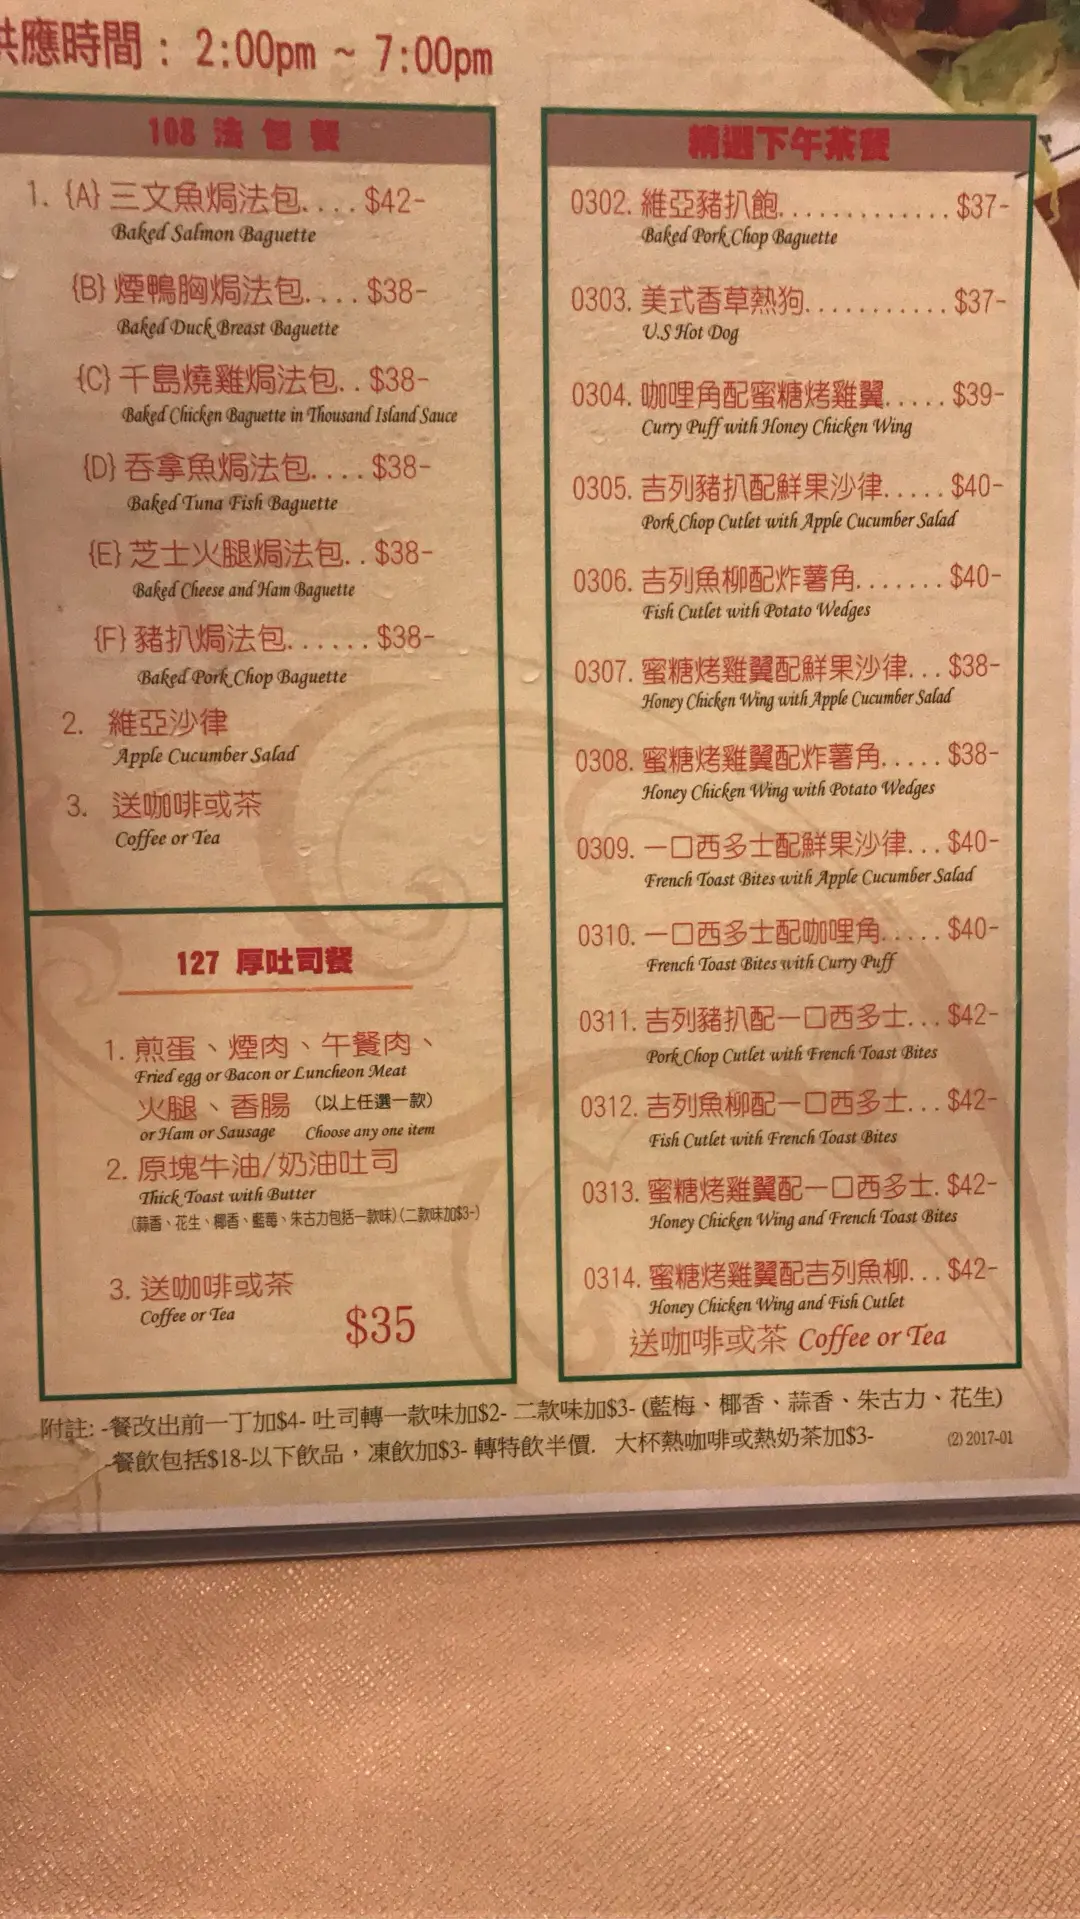 供應時間：2:00pm ~ 7:00pm
108 法 包 餐
1. {A} 三文魚焗法包.... $42-
Baked Salmon Baguette
{B} 煙鴨胸焗法包.... $38-
Baked Duck Breast Baguette
{C} 千島燒雞焗法包.. $38-
Baked Chicken Baguette in Thousand Island Sauce
{D} 吞拿魚焗法包.... $38-
Baked Tuna Fish Baguette
{E} 芝士火腿焗法包.. $38-
Baked Cheese and Ham Baguette
{F} 豬扒焗法包...... $38-
Baked Pork Chop Baguette
2. 維亞沙律
Apple Cucumber Salad
3. 送咖啡或茶
Coffee or Tea
127 厚吐司餐
1. 煎蛋、煙肉、午餐肉、
Fried egg or Bacon or Luncheon Meat
火腿、香腸 (以上任選一款)
or Ham or Sausage Choose any one item
2. 原塊牛油/奶油吐司
Thick Toast with Butter
(蒜香、花生、椰香、藍莓、朱古力包括一款味)(二款味加$3-)
3. 送咖啡或茶
Coffee or Tea
$35
精選下午茶餐
0302. 維亞豬扒飽............. $37-
Baked Pork Chop Baguette
0303. 美式香草熱狗........... $37-
U.S Hot Dog
0304. 咖哩角配蜜糖烤雞翼..... $39-
Curry Puff with Honey Chicken Wing
0305. 吉列豬扒配鮮果沙律..... $40-
Pork Chop Cutlet with Apple Cucumber Salad
0306. 吉列魚柳配炸薯角....... $40-
Fish Cutlet with Potato Wedges
0307. 蜜糖烤雞翼配鮮果沙律... $38-
Honey Chicken Wing with Apple Cucumber Salad
0308. 蜜糖烤雞翼配炸薯角..... $38-
Honey Chicken Wing with Potato Wedges
0309. 一口西多士配鮮果沙律... $40-
French Toast Bites with Apple Cucumber Salad
0310. 一口西多士配咖哩角..... $40-
French Toast Bites with Curry Puff
0311. 吉列豬扒配一口西多士... $42-
Pork Chop Cutlet with French Toast Bites
0312. 吉列魚柳配一口西多士... $42-
Fish Cutlet with French Toast Bites
0313. 蜜糖烤雞翼配一口西多士. $42-
Honey Chicken Wing and French Toast Bites
0314. 蜜糖烤雞翼配吉列魚柳... $42-
Honey Chicken Wing and Fish Cutlet
送咖啡或茶 Coffee or Tea
附註: -餐改出前一丁加$4- 吐司轉一款味加$2- 二款味加$3- (藍梅、椰香、蒜香、朱古力、花生)
-餐飲包括$18-以下飲品，凍飲加$3- 轉特飲半價. 大杯熱咖啡或熱奶茶加$3-
(2) 2017-01